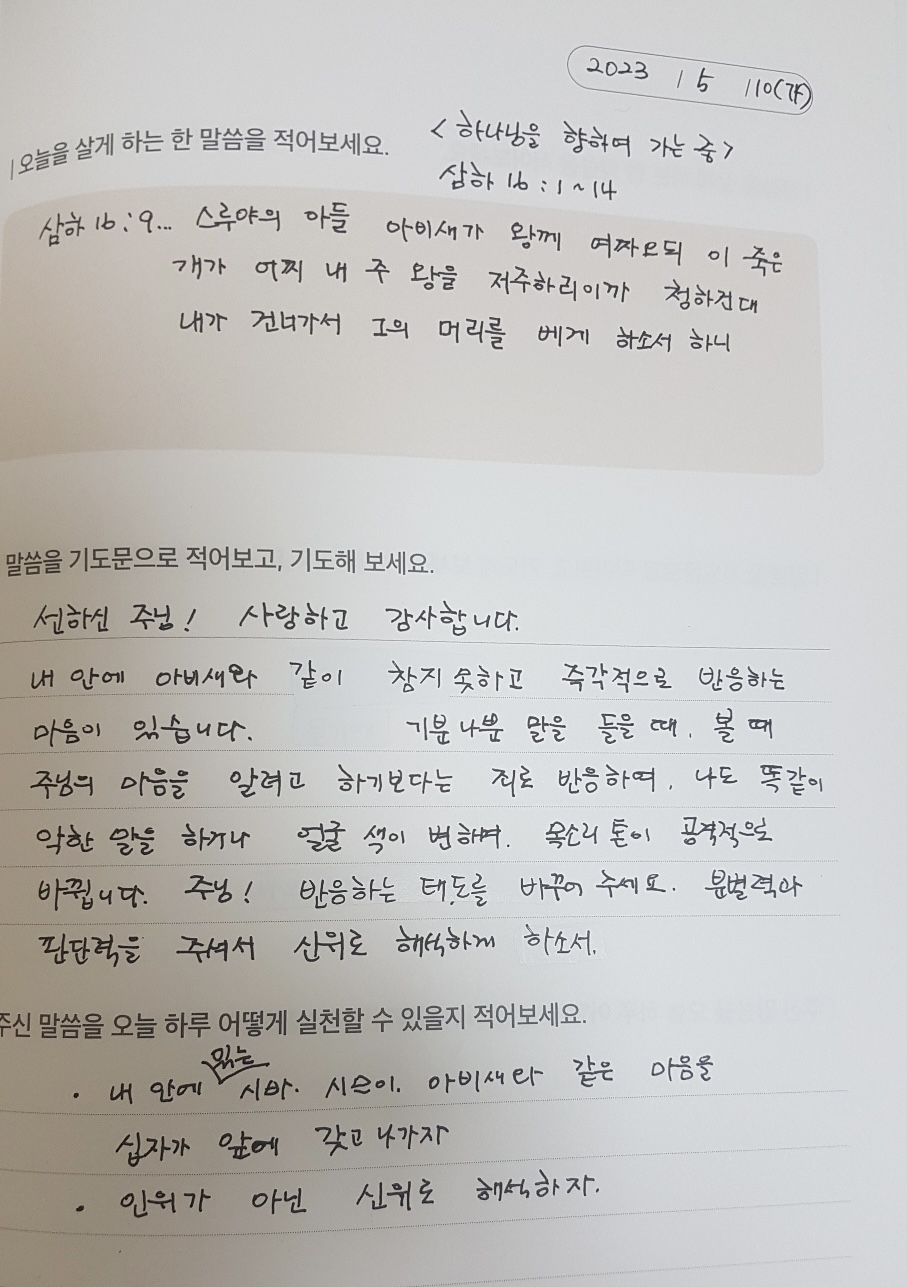 2023 / 5 / 10(각)
| 오늘을 살게 하는 한 말씀을 적어보세요.
< 하나님을 향하여 가는 중 >
삼하 16 : 1 ~ 14
삼하 16 : 9... 스루야의 아들 아비새가 왕께 여짜오되 이 죽은
개가 어찌 내 주 왕을 저주하리이까 청하건대
내가 건너가서 그의 머리를 베게 하소서 하니
말씀을 기도문으로 적어보고, 기도해 보세요.
선하신 주님! 사랑하고 감사합니다.
내 안에 아비새와 같이 참지 못하고 즉각적으로 반응하는
마음이 있습니다. 기분 나쁜 말을 들을 때, 볼 때
주님의 마음을 알려고 하기보다는 죄로 반응하여, 나도 똑같이
악한 말을 하거나 얼굴 색이 변하며, 목소리 톤이 공격적으로
바뀝니다. 주님! 반응하는 태도를 바꾸어 주세요. 분별력과
판단력을 주셔서 신위로 해석하게 하소서.
주신 말씀을 오늘 하루 어떻게 실천할 수 있을지 적어보세요.
· 내 안에 있는 시바. 시므이. 아비새와 같은 마음을
십자가 앞에 갖고 나가자
· 인위가 아닌 신위로 해석하자.